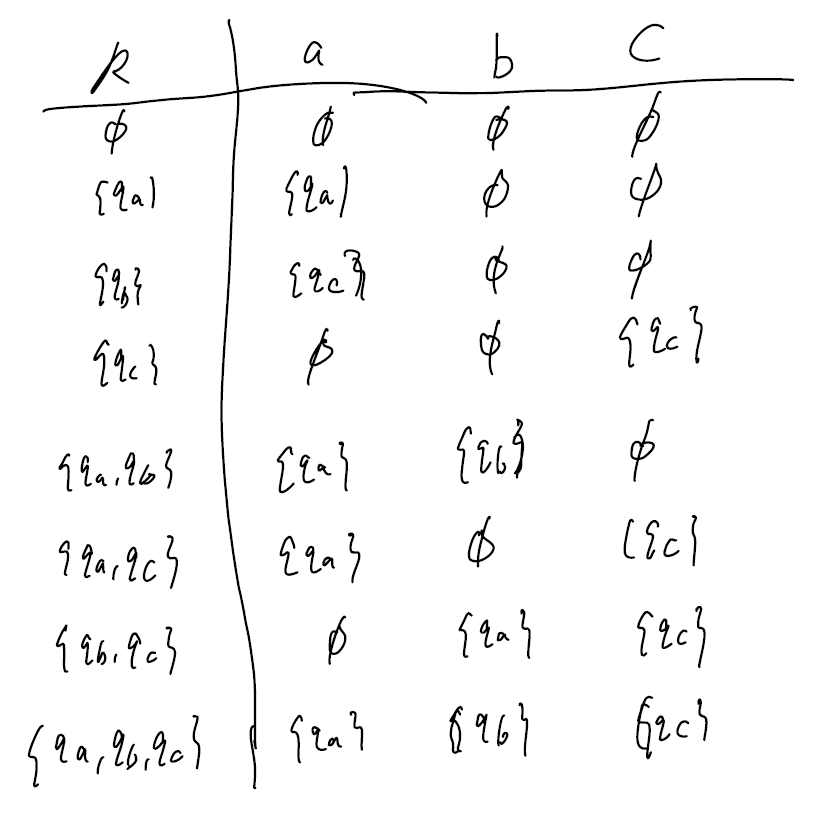 R a b C
φ φ φ φ
{qa} {qa} φ φ
{qb} {qc} φ φ
{qc} φ φ {qc}
{qa, qb} {qa} {qb} φ
{qa, qc} {qa} φ {qc}
{qb, qc} φ {qa} {qc}
{qa, qb, qc} {qa} {qb} {qc}